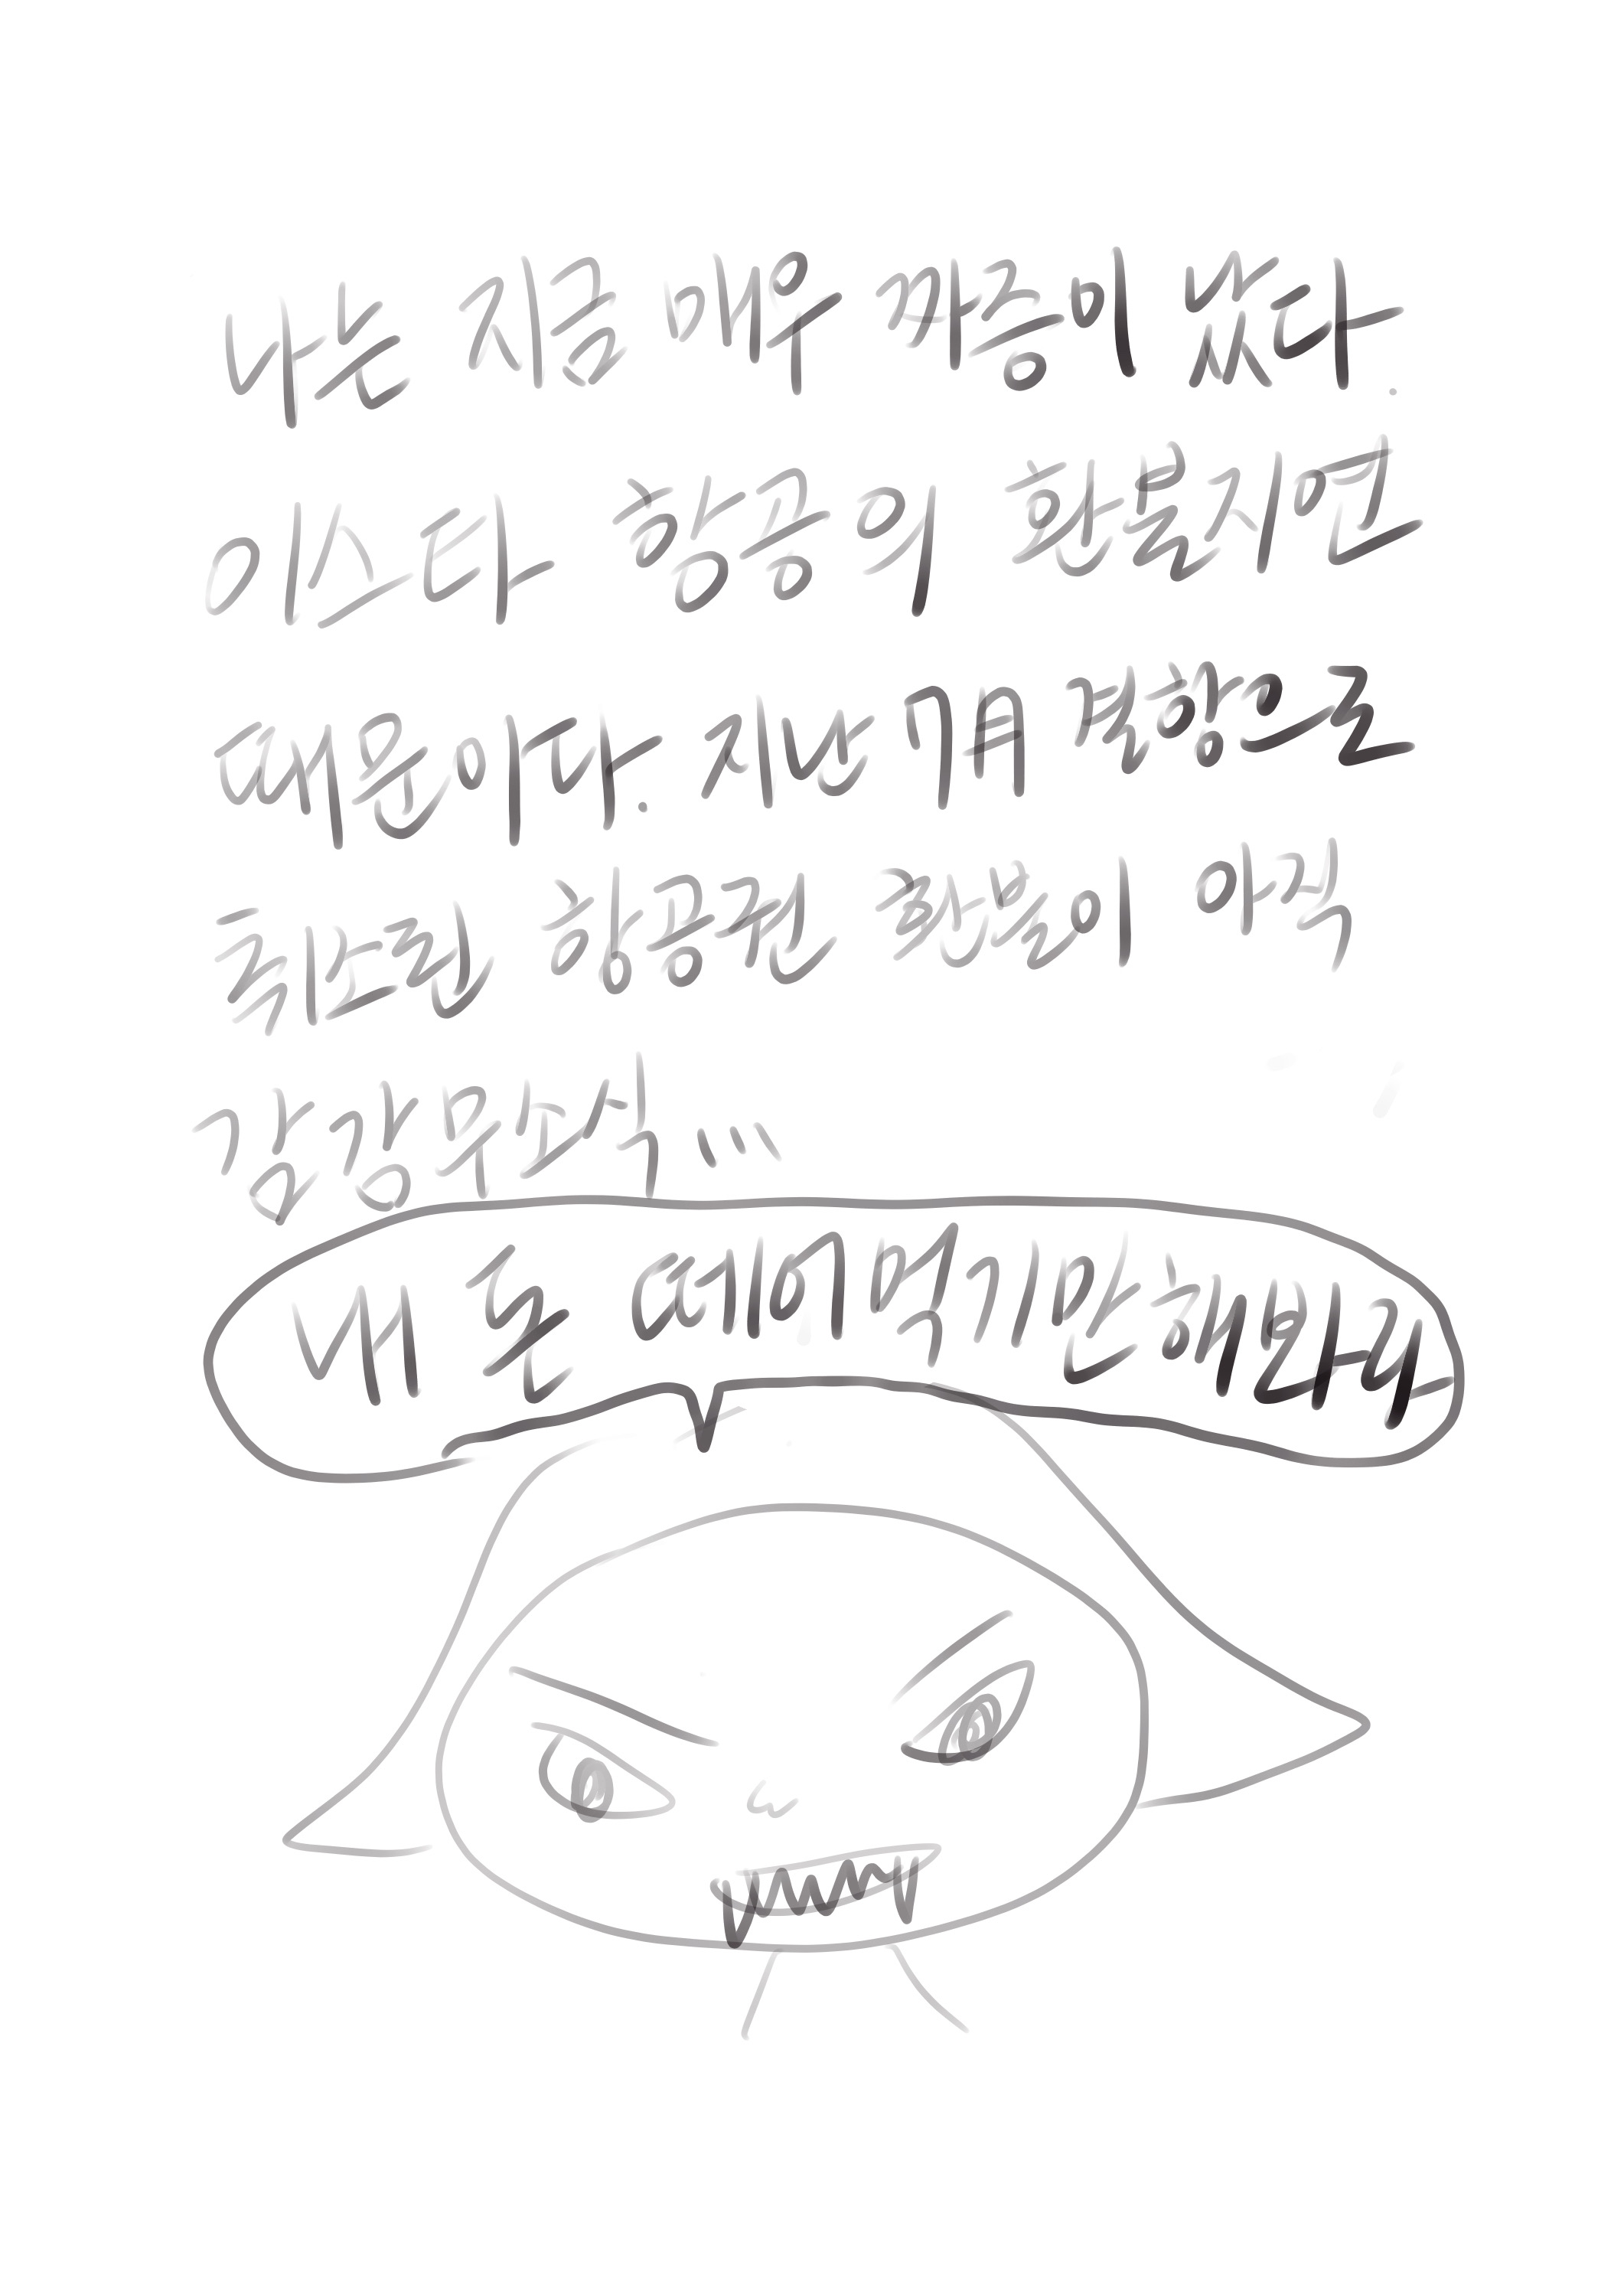 나는 지금 매우 짜증이 났다.
이스타 항공의 환불지연
때문이다. 지난 7月 결항으로
취소된 항공권 환불이 아직
감감무소식...
내 돈 떼어먹기만해봐라